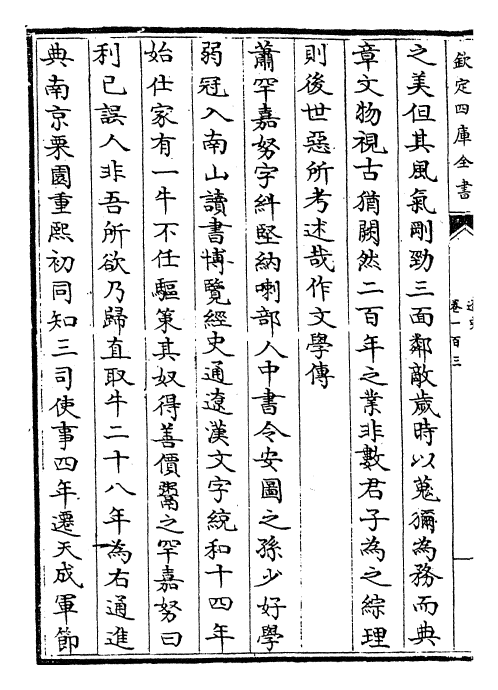 欽定四庫全書
卷一百三
之美但其風氣剛勁三面鄰敵歲時以蒐獮為務而典
章文物視古猶闕然二百年之業非數君子為之綜理
則後世惡所考述哉作文學傳
蕭罕嘉努字糾堅納喇部人中書令安圖之孫少好學
弱冠入南山讀書博覽經史通遼漢文字統和十四年
始仕家有一牛不任驅策其奴得善價鬻之罕嘉努曰
利己誤人非吾所欲乃歸直取牛二十八年為右通進
典南京栗園重熙初同知三司使事四年遷天成軍節